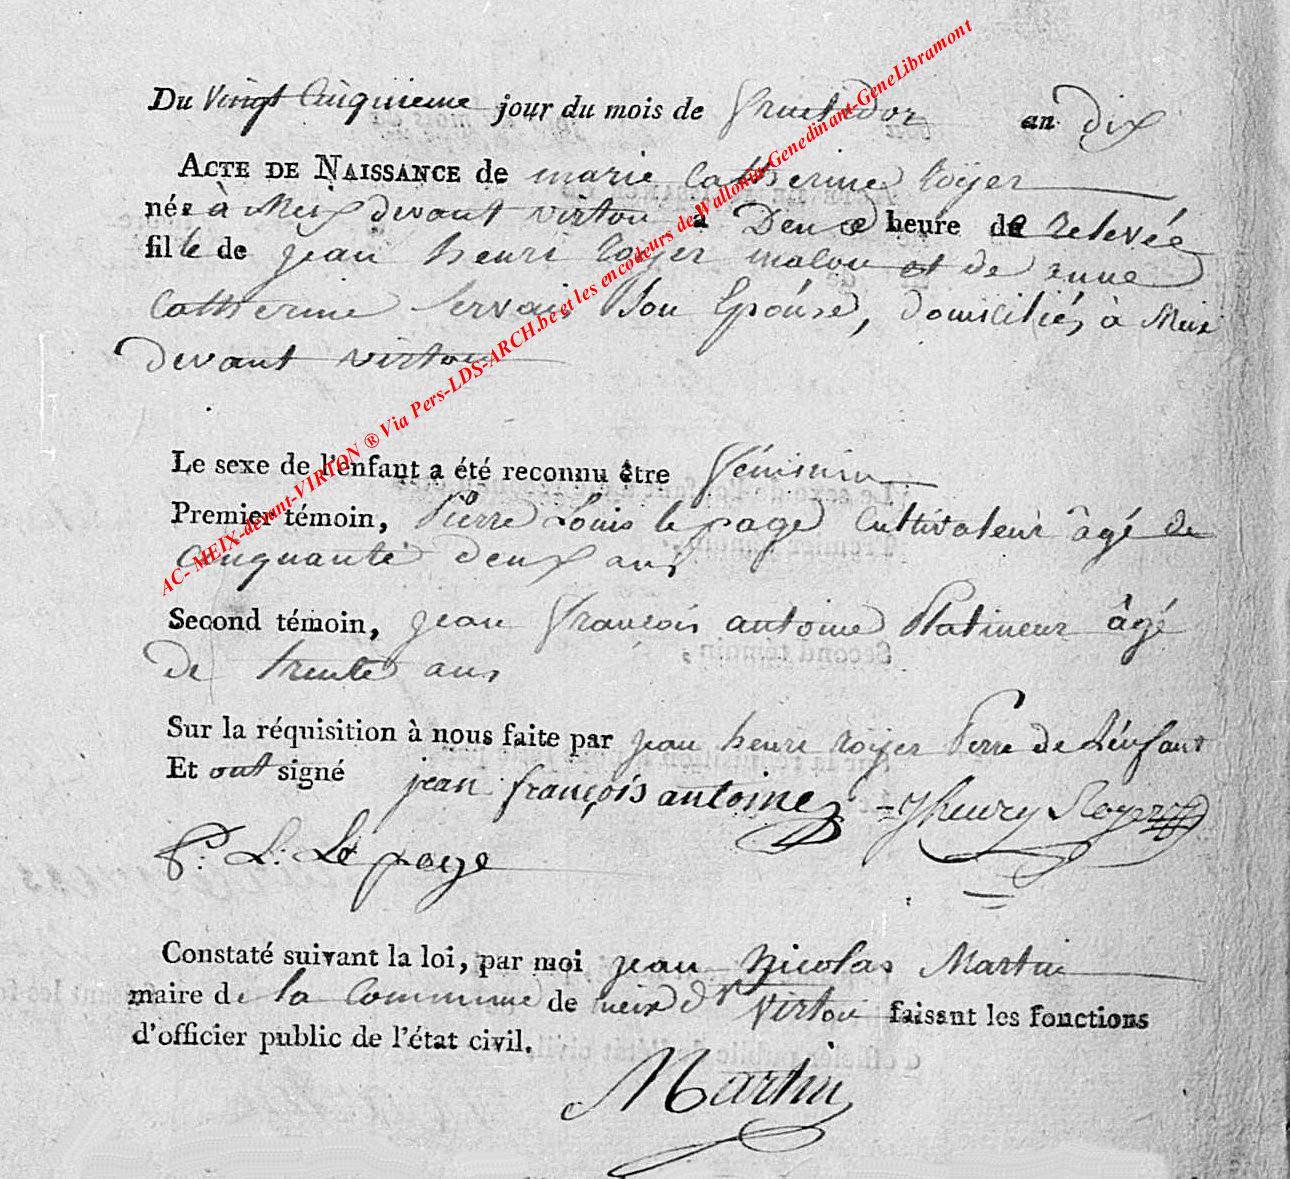 Du Vingt Cinquieme jour du mois de Fructidor an dix
ACTE DE NAISSANCE de marie Catherine royer
née à Meix devant virton à Deux heure de relevée
fille de jean henri royer maçon et de anne
Catherine Servais Son Epouse, domiciliés à Meix
devant virton
Le sexe de l'enfant a été reconnu être féminin
Premier témoin, Pierre Louis le page Cultivateur âgé de
Cinquante deux ans
Second témoin, jean françois antoine Platineur âgé
de trente ans
Sur la réquisition à nous faite par jean henri royer Perre de L'enfant
Et ont signé jean françois antoine J henry Royer
P: L: Le page
Constaté suivant la loi, par moi jean Nicolas Martin
maire de la Commune de meix dt Virton faisant les fonctions
d'officier public de l'état civil.
Martin
AC- MEIX-devant-VIRTON ® Via Pers-LDS-ARCH.be et les encodeurs de Wallonia-Genedinant-GeneLibramont